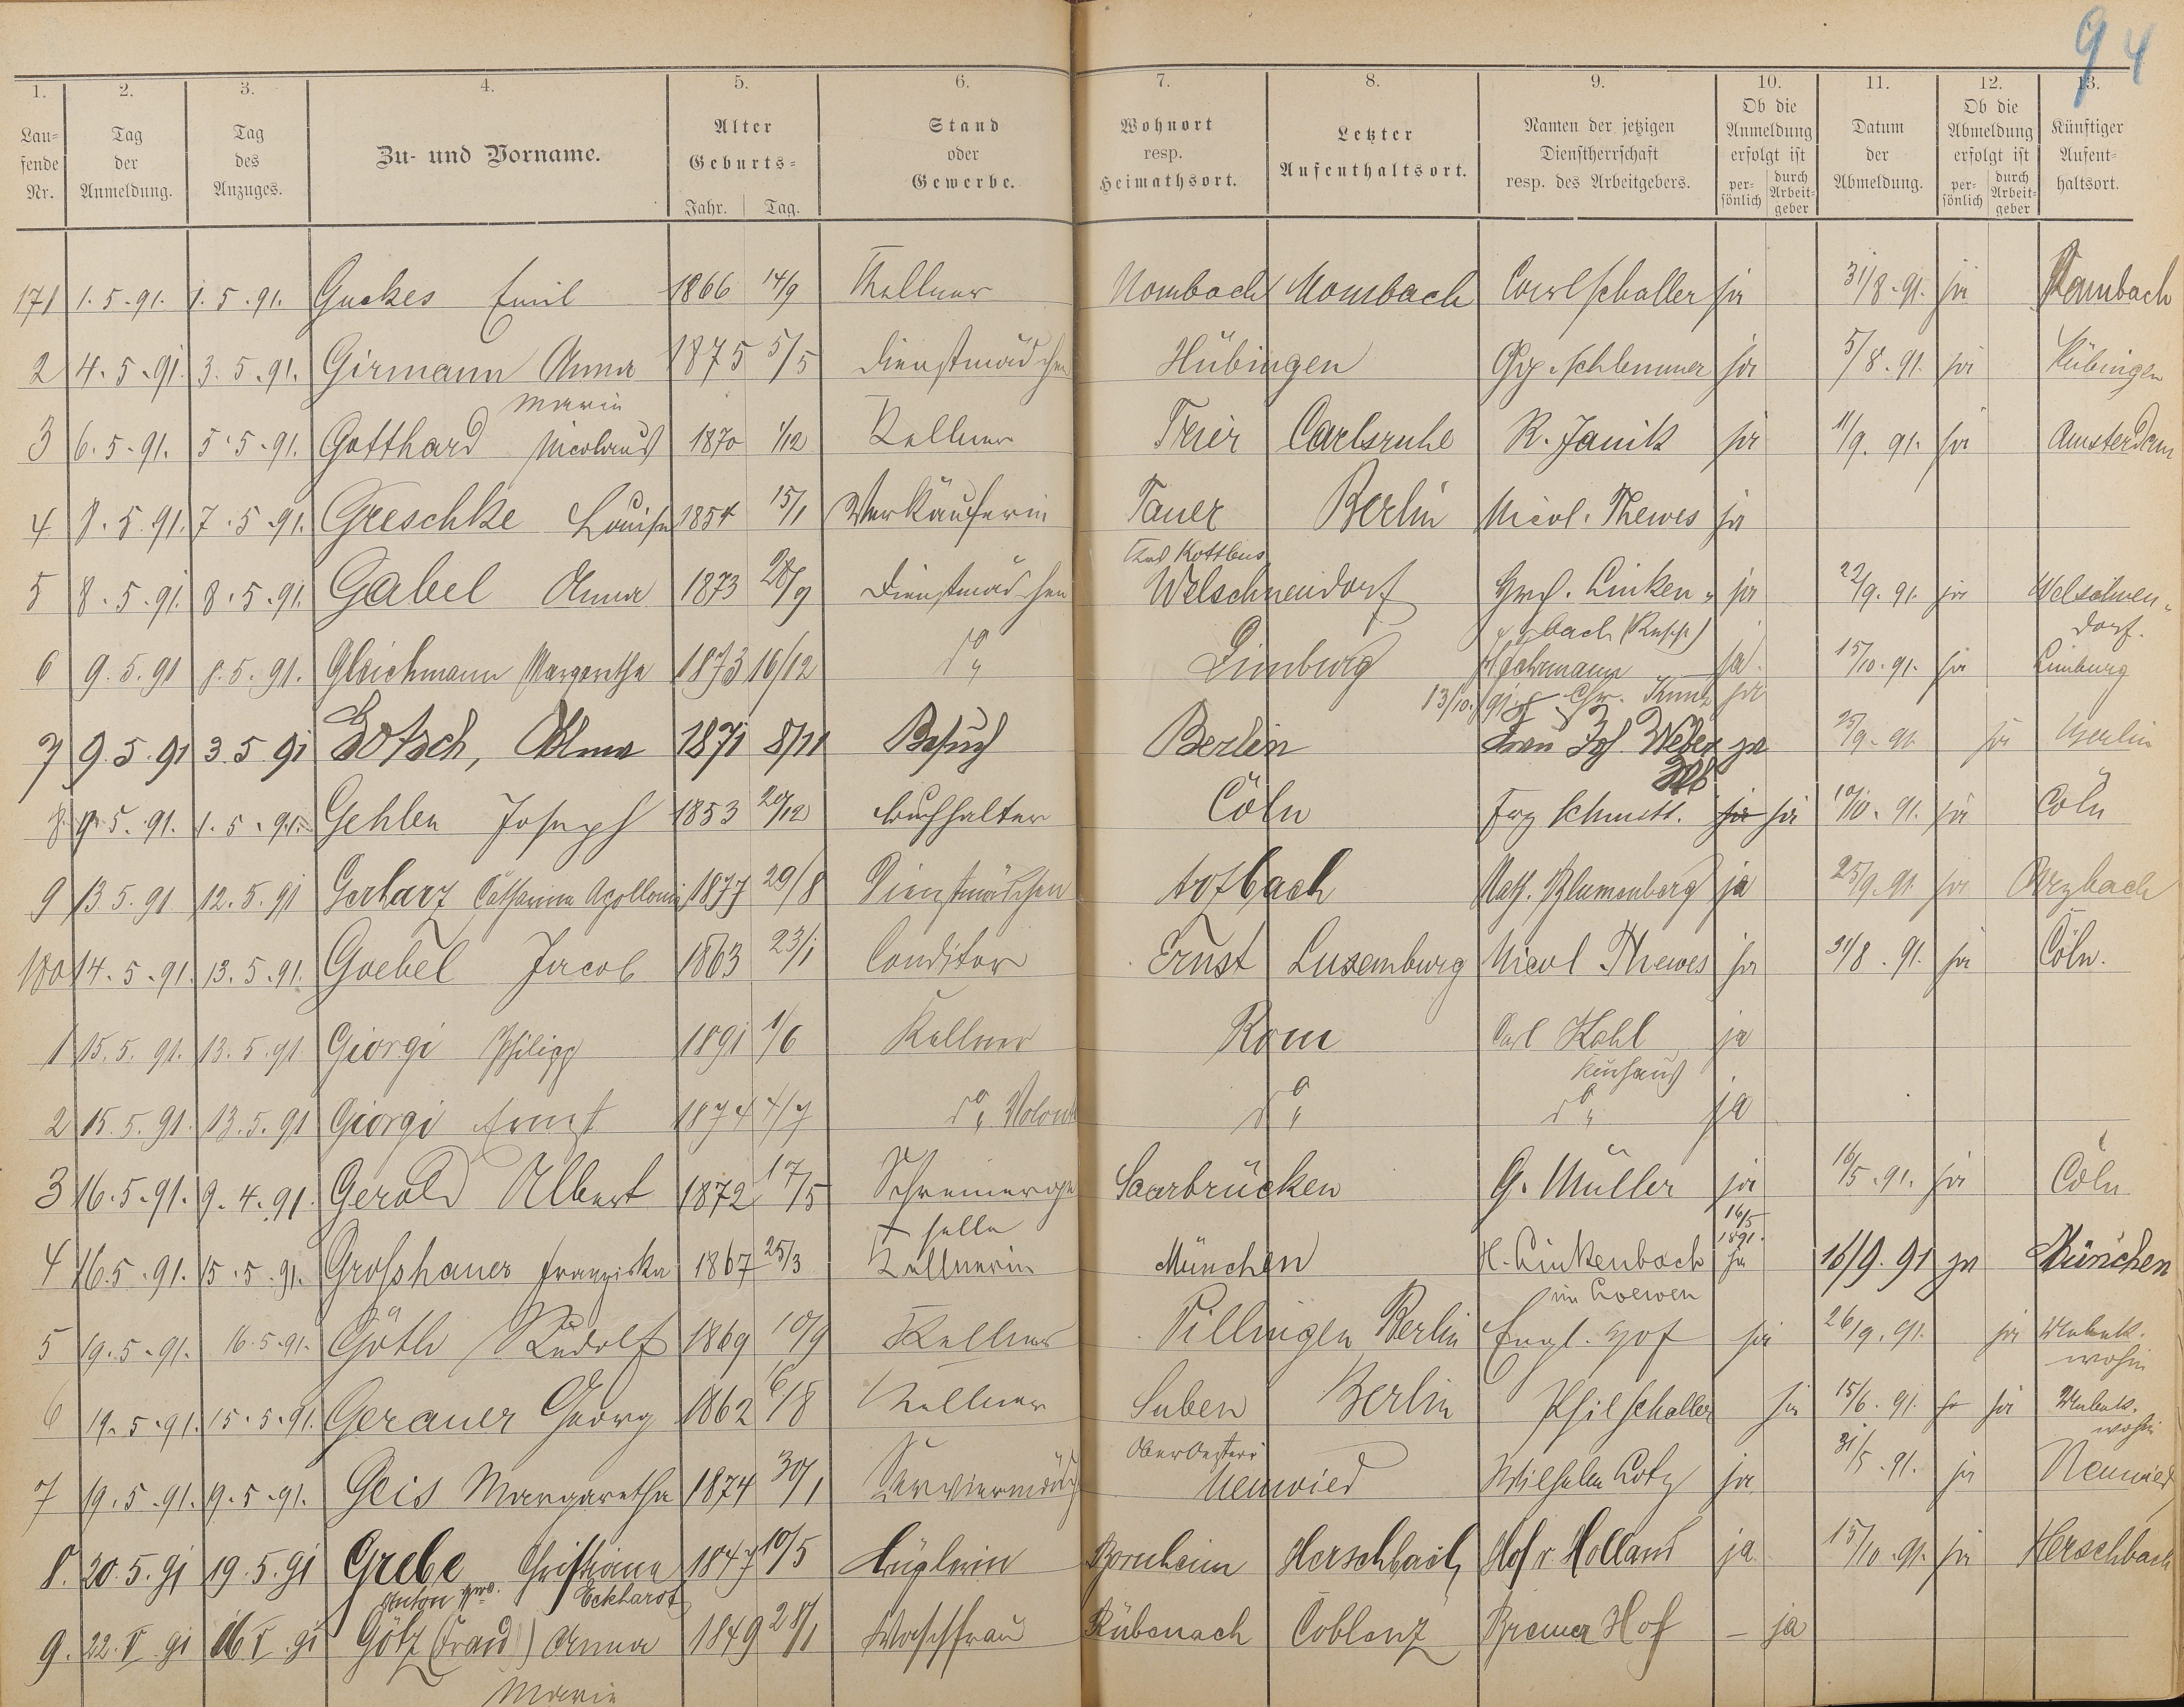 94
1. 2. 3. 4. 5. 6. 7. 8. 9. 10. 11. 12. 13.
Lau-
fende
Nr.
Tag
der
Anmeldung.
Tag
des
Anzuges.
Zu- und Vorname.
Alter
Geburts-
Jahr. Tag.
Stand
oder
Gewerbe.
Wohnort
resp.
Heimathsort.
Letzter
Aufenthaltsort.
Namen der jetzigen
Dienstherrschaft
resp. des Arbeitgebers.
Ob die
Anmeldung
erfolgt ist
per-
sönlich
durch
Arbeit-
geber
Datum
der
Abmeldung.
Ob die
Abmeldung
erfolgt ist
per-
sönlich
durch
Arbeit-
geber
Künftiger
Aufent-
haltsort.
171 1.5.91. 1.5.91. Guckes Emil 1866 14/9 Kellner Mombach Mombach Carl Schaller ja 31/8.91. ja
2 4.5.91. 3.5.91. Girmann Anna 1875 5/5 Dienstmädchen Hübingen Schlemmer ja 5/8.91. ja Hübingen
Maria
3 6.5.91. 5.5.91. Gotthard Nicolaus 1870 1/12 Kellner Trier Carlsruhe R. Janik ja 11/9.91. ja Amsterdam
4 8.5.91. 7.5.91. Greschke Louise 1854 15/1 Verkäuferin Tauer Berlin Nicol. Thewes ja
Kottbus
5 8.5.91. 8.5.91. Gabel Anna 1873 28/9 Dienstmädchen Welschneudorf Linken- ja 22/9.91. ja Welschneu-
bach dorf.
6 9.5.91 8.5.91. Gleichmann Margaretha 1873 16/12 do Limburg ja. 15/10.91. ja Limburg
13/10.91 Chr. Kunz ja
7 9.5.91 3.5.91 Gotsch, Alma 1871 8/11 Besuch Berlin Frau Jos Weber ja 25/9.91. ja Berlin
8 9.5.91. 1.5.91. Gehlen Joseph 1853 20/12 Buchhalter Cöln Schmitt. ja ja 10/10.91. ja Cöln
9 13.5.91 12.5.91 Gerharz Catharina Apollonia 1877 29/8 Dienstmädchen Nath. Blumenberg ja 25/9.91. ja Arzbach
180 14.5.91. 13.5.91. Goebel Jacob 1863 23/1 Conditor Ernst Luxemburg Nicol Thewes ja 31/8.91. ja Cöln.
1 15.5.91. 13.5.91 Giorgi Philipp 1891 1/6 Kellner Rom Carl Kahl ja
Kurhaus
2 15.5.91. 13.5.91 Giorgi Ernst 1874 4/7 do Volont do do ja
3 16.5.91. 9.4.91. Gerold Albert 1872 17/5 Schreinerge- Saarbrücken G. Müller ja 16/5.91. ja Cöln
selle 16/5 1891.
4 16.5.91. 15.5.91. Großhauer Franziska 1867 25/3 Kellnerin München H. Linkenbach ja 16/9.91 ja München
im Loewen
5 19.5.91. 16.5.91. Göth Rudolf 1869 10/9 Kellner Villingen Berlin Engl. Hof ja 26/9.91. ja Unbek.
wohin
6 19.5.91. 15.5.91. Gerauer Georg 1862 16/8 Kellner Suben Berlin Phil Schaller ja 15/6.91. ja ja Unbek.
Ober Oesterr wohin
7 19.5.91. 19.5.91. Geis Margaretha 1874 30/1 Serviermädch Neuwied Wilhelm Lotz ja 31/5.91. ja Neuwied
8. 20.5.91 19.5.91 Grebe Christiane 1847 10/5 Büglerin Bornheim Herschbach Hof v. Holland ja 15/10.91. ja Herschbach
Anton Eckhardt
9. 22.V.91 16.V.91 Götz (Frau) Anna 1849 28/1 Waschfrau Rübenach Coblenz Bremer Hof – ja
Maria